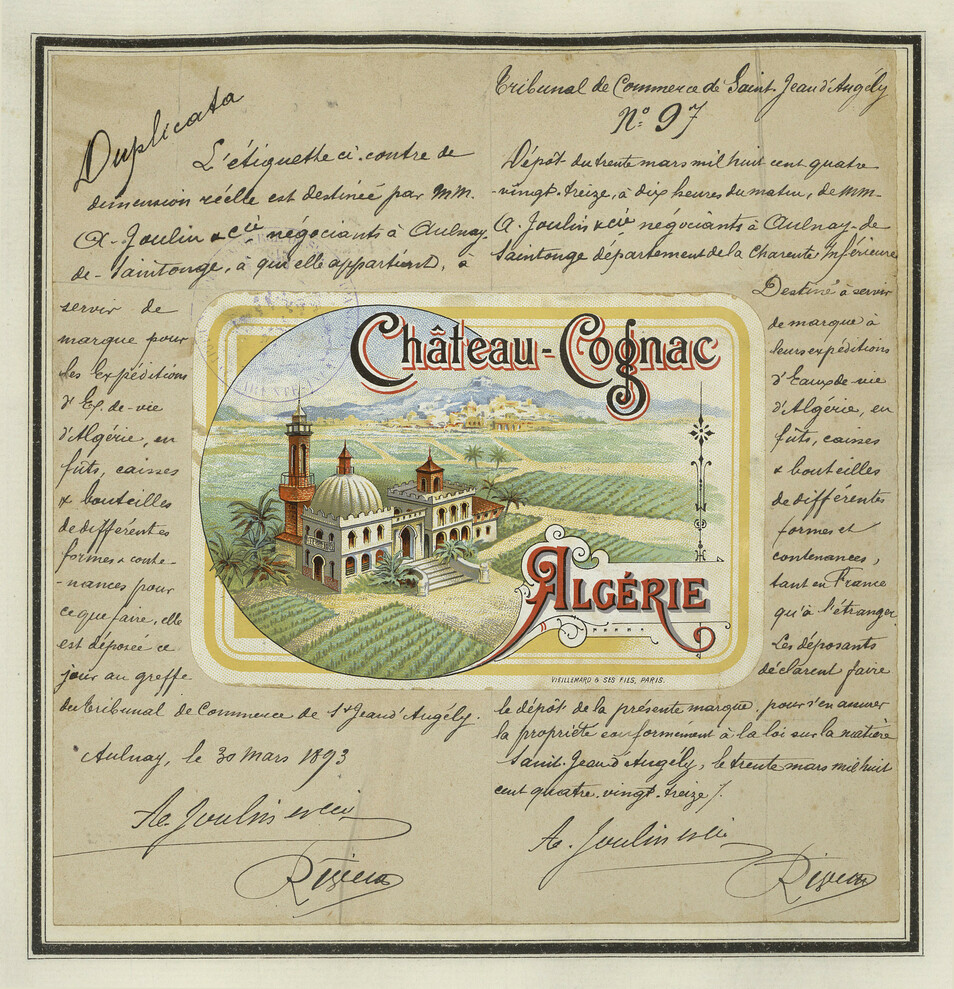 Duplicata
L'étiquette ci-contre de
dimension réelle est destinée par MM.
A. Joulin & Cie négociants à Aulnay-
de-Saintonge, à qui elle appartient, à
servir de
marque pour
les Expéditions
d'Ex. de-vie
d'Algérie, en
fûts, caisses
& bouteilles
de différentes
formes & conte-
-nances pour
ce que faire, elle
est déposée ce
jour au greffe
du tribunal de Commerce de St Jean d'Angély.
Aulnay, le 30 Mars 1893
A. Joulin et Cie
Tribunal de Commerce de Saint-Jean d'Angély
N° 97
Dépôt du trente mars mil huit cent quatre
-vingt-treize, à dix heures du matin, de MM.
A. Joulin & Cie négociants à Aulnay-de
Saintonge département de la Charente Inférieure
Destiné à servir
de marque à
leurs expéditions
d'Eaux de vie
d'Algérie, en
fûts, caisses
& bouteilles
de différentes
formes et
contenances,
tant en France
qu'à l'étranger
Les déposants
déclarent faire
le dépôt de la présente marque pour s'en assurer
la propriété conformément à la loi sur la matière
Saint-Jean d'Angély, le trente mars mil huit
cent quatre-vingt-treize /.
A. Joulin et Cie
Château-Cognac
ALGÉRIE
VIEILLEMARD & SES FILS, PARIS.